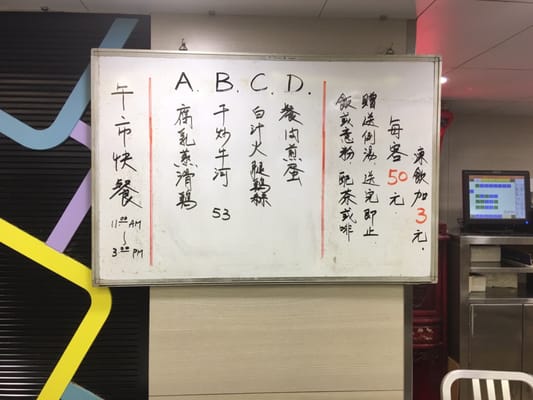 午市快餐
11:00 AM
~
3:00 PM
A. B. C. D.
腐乳蒸滑鷄
干炒牛河 53
白汁火腿鷄絲
餐肉煎蛋
凍飲加3元.
每客50元.
贈送例湯,送完即止.
飯或意粉 配茶或啡